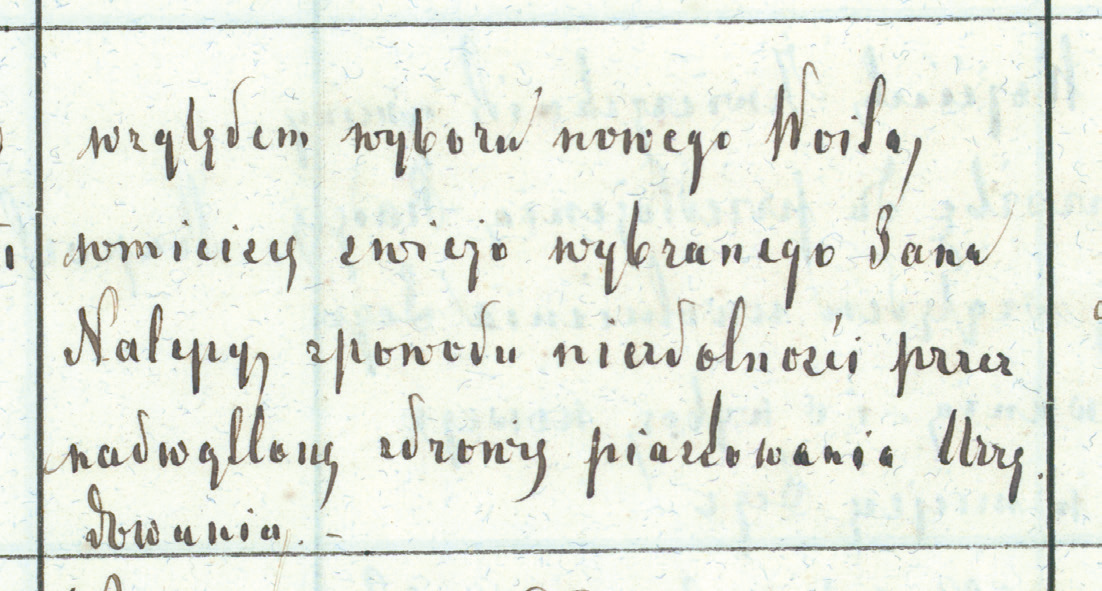 względem wyboru nowego Woita,
wmieiscę swieżo wybranego Jana
Nalepy, zpowodu niezdolności przez
nadwątloną zdrowię piastowania Urzę
dowania. -